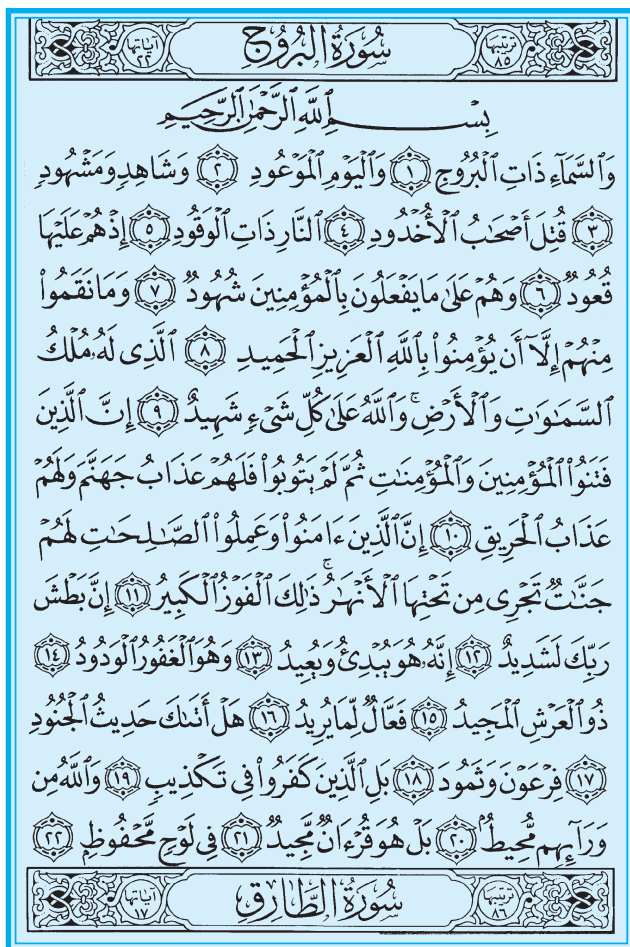 ترتيبها ٨٥ سُورَةُ الْبُرُوجِ آياتها ٢٢
بِسْمِ ٱللَّهِ ٱلرَّحْمَٰنِ ٱلرَّحِيمِ
وَٱلسَّمَآءِ ذَاتِ ٱلْبُرُوجِ ١ وَٱلْيَوْمِ ٱلْمَوْعُودِ ٢ وَشَاهِدٍ وَمَشْهُودٍ
٣ قُتِلَ أَصْحَٰبُ ٱلْأُخْدُودِ ٤ ٱلنَّارِ ذَاتِ ٱلْوَقُودِ ٥ إِذْ هُمْ عَلَيْهَا
قُعُودٌ ٦ وَهُمْ عَلَىٰ مَا يَفْعَلُونَ بِٱلْمُؤْمِنِينَ شُهُودٌ ٧ وَمَا نَقَمُوا۟
مِنْهُمْ إِلَّآ أَن يُؤْمِنُوا۟ بِٱللَّهِ ٱلْعَزِيزِ ٱلْحَمِيدِ ٨ ٱلَّذِى لَهُۥ مُلْكُ
ٱلسَّمَٰوَٰتِ وَٱلْأَرْضِ ۚ وَٱللَّهُ عَلَىٰ كُلِّ شَىْءٍ شَهِيدٌ ٩ إِنَّ ٱلَّذِينَ
فَتَنُوا۟ ٱلْمُؤْمِنِينَ وَٱلْمُؤْمِنَٰتِ ثُمَّ لَمْ يَتُوبُوا۟ فَلَهُمْ عَذَابُ جَهَنَّمَ وَلَهُمْ
عَذَابُ ٱلْحَرِيقِ ١٠ إِنَّ ٱلَّذِينَ ءَامَنُوا۟ وَعَمِلُوا۟ ٱلصَّٰلِحَٰتِ لَهُمْ
جَنَّٰتٌ تَجْرِى مِن تَحْتِهَا ٱلْأَنْهَٰرُ ۚ ذَٰلِكَ ٱلْفَوْزُ ٱلْكَبِيرُ ١١ إِنَّ بَطْشَ
رَبِّكَ لَشَدِيدٌ ١٢ إِنَّهُۥ هُوَ يُبْدِئُ وَيُعِيدُ ١٣ وَهُوَ ٱلْغَفُورُ ٱلْوَدُودُ ١٤
ذُو ٱلْعَرْشِ ٱلْمَجِيدُ ١٥ فَعَّالٌ لِّمَا يُرِيدُ ١٦ هَلْ أَتَىٰكَ حَدِيثُ ٱلْجُنُودِ
١٧ فِرْعَوْنَ وَثَمُودَ ١٨ بَلِ ٱلَّذِينَ كَفَرُوا۟ فِى تَكْذِيبٍ ١٩ وَٱللَّهُ مِن
وَرَآئِهِم مُّحِيطٌۢ ٢٠ بَلْ هُوَ قُرْءَانٌ مَّجِيدٌ ٢١ فِى لَوْحٍ مَّحْفُوظٍۭ ٢٢
ترتيبها ٨٦ سُورَةُ الطَّارِقِ آياتها ١٧